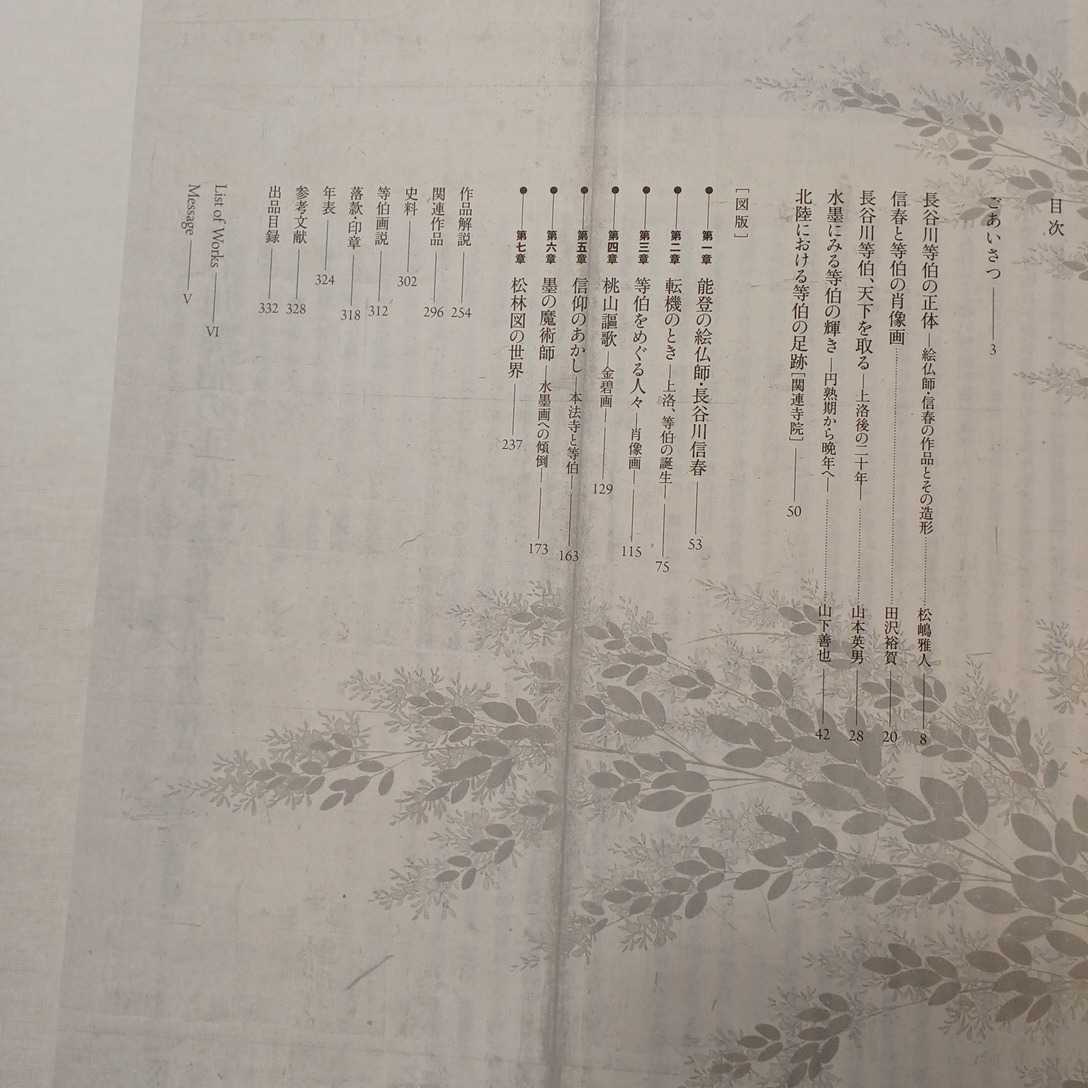 目次
ごあいさつ 3
長谷川等伯の正体―絵仏師・信春の作品とその造形 松嶋雅人 8
信春と等伯の肖像画 田沢裕賀 20
長谷川等伯、天下を取る―上洛後の二十年 山本英男 28
水墨にみる等伯の輝き―円熟期から晩年へ 山下善也 42
北陸における等伯の足跡[関連寺院] 50
[図版]
第一章 能登の絵仏師・長谷川信春 53
第二章 転機のとき―上洛、等伯の誕生 75
第三章 等伯をめぐる人々―肖像画 115
第四章 桃山謳歌―金碧画 129
第五章 信仰のあかし―本法寺と等伯 163
第六章 墨の魔術師―水墨画への傾倒 173
第七章 松林図の世界 237
作品解説 254
関連作品 296
史料 302
等伯画説 312
落款・印章 318
年表 324
参考文献 328
出品目録 332
List of Works VI
Message V